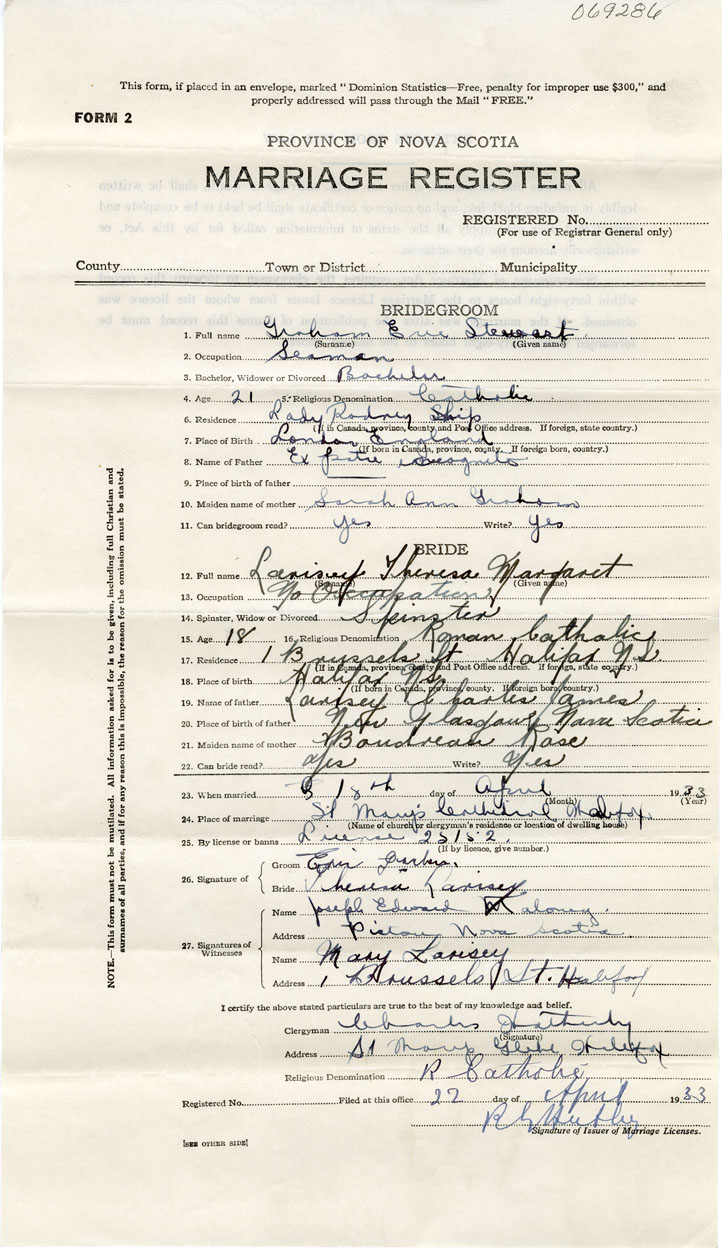 069286
This form, if placed in an envelope, marked "Dominion Statistics—Free, penalty for improper use $300," and
properly addressed will pass through the Mail "FREE."
FORM 2
PROVINCE OF NOVA SCOTIA
MARRIAGE REGISTER
REGISTERED No.
(For use of Registrar General only)
County Town or District Municipality
BRIDEGROOM
1. Full name Graham Eric Stewart
(Surname) (Given name)
2. Occupation Seaman
3. Bachelor, Widower or Divorced Bachelor
4. Age 21 5. Religious Denomination Catholic
6. Residence Lady Rodney Ship
(If in Canada, province, county and Post Office address. If foreign, state country.)
7. Place of Birth London England
(If born in Canada, province, county. If foreign born, country.)
8. Name of Father Ex patre incognito
9. Place of birth of father
10. Maiden name of mother Sarah Ann Graham
11. Can bridegroom read? yes Write? yes
BRIDE
12. Full name Larisey Theresa Margaret
(Surname) (Given name)
13. Occupation No Occupation
14. Spinster, Widow or Divorced Spinster
15. Age 18 16. Religious Denomination Roman Catholic
17. Residence 1 Brussels St Halifax N.S.
(If in Canada, province, county and Post Office address. If foreign, state country.)
18. Place of birth Halifax N.S.
(If born in Canada, province, county. If foreign born, country.)
19. Name of father Larisey Charles James
20. Place of birth of father New Glasgow Nova Scotia
21. Maiden name of mother Boudreau Rose
22. Can bride read? yes Write? Yes
23. When married 18th day of April 1933
(Month) (Year)
24. Place of marriage St Mary's Cathedral Halifax
(Name of church or clergyman's residence or location of dwelling house)
25. By license or banns License 25152
(If by licence, give number.)
26. Signature of
Groom Eric
Bride Theresa Larisey
27. Signatures of Witnesses
Name Joseph Edward Maloney
Address Pictou Nova Scotia
Name Mary Larisey
Address 1 Brussels St. Halifax
I certify the above stated particulars are true to the best of my knowledge and belief.
Clergyman Charles
(Signature)
Address St Marys Glebe Halifax
Religious Denomination R Catholic
Registered No. Filed at this office 22 day of April 1933
Signature of Issuer of Marriage Licenses.
[SEE OTHER SIDE]
NOTE.—This form must not be mutilated. All information asked for is to be given, including full Christian and
surnames of all parties, and if for any reason this is impossible, the reason for the omission must be stated.